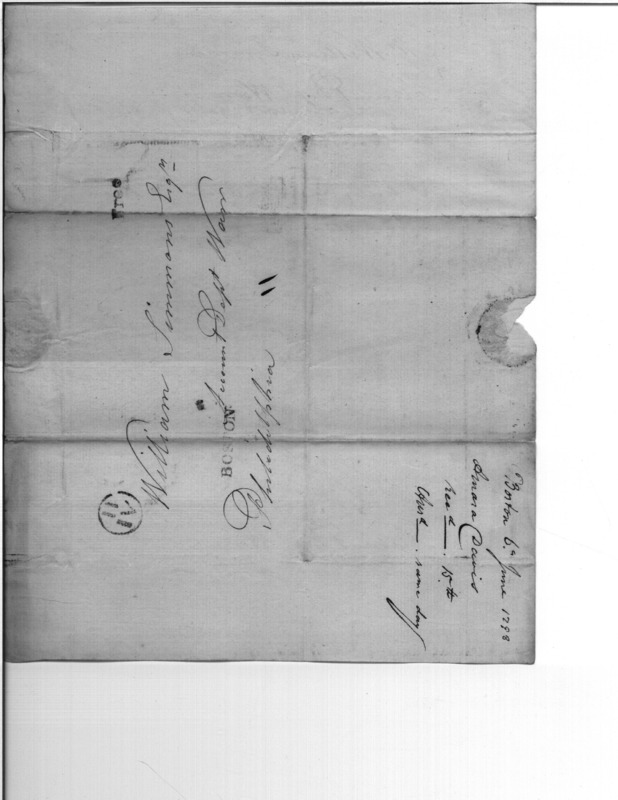 Free
William Simmons Esqr
Accomt Dept War
Philadelphia
BOSTON
Boston 6th June 1798
Amasa Davis
recd 15th
Ansd same day